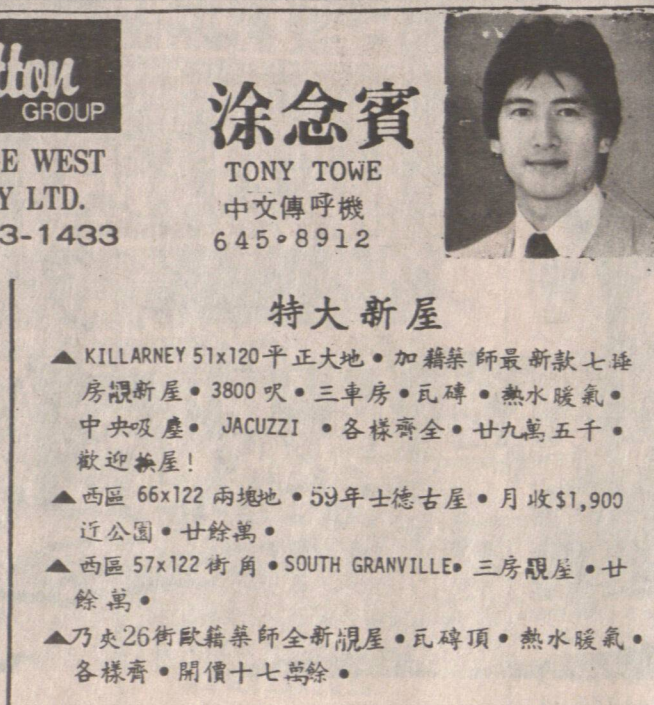 tton
GROUP
E WEST
Y LTD.
3-1433
涂念賓
TONY TOWE
中文傳呼機
645•8912
特大新屋
▲ KILLARNEY 51x120平正大地•加籍築師最新款七睡
房靚新屋•3800呎•三車房•瓦磚•熱水暖氣•
中央吸塵• JACUZZI •各樣齊全•廿九萬五千•
歡迎換屋!
▲西區66x122兩塊地•59年士德古屋•月收$1,900
近公園•廿餘萬•
▲西區57x122街角•SOUTH GRANVILLE•三房靚屋•廿
餘萬•
▲乃夾26街歐籍築師全新靚屋•瓦磚頂•熱水暖氣•
各樣齊•開價十七萬餘•